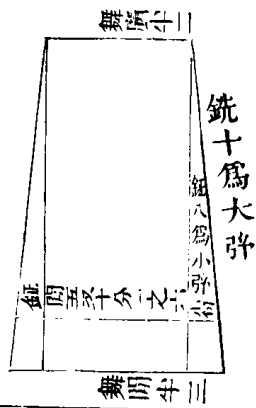 舞間半二
銑十爲大弥
鉦八爲小弥
鉦間五又十分之六
舞間半三